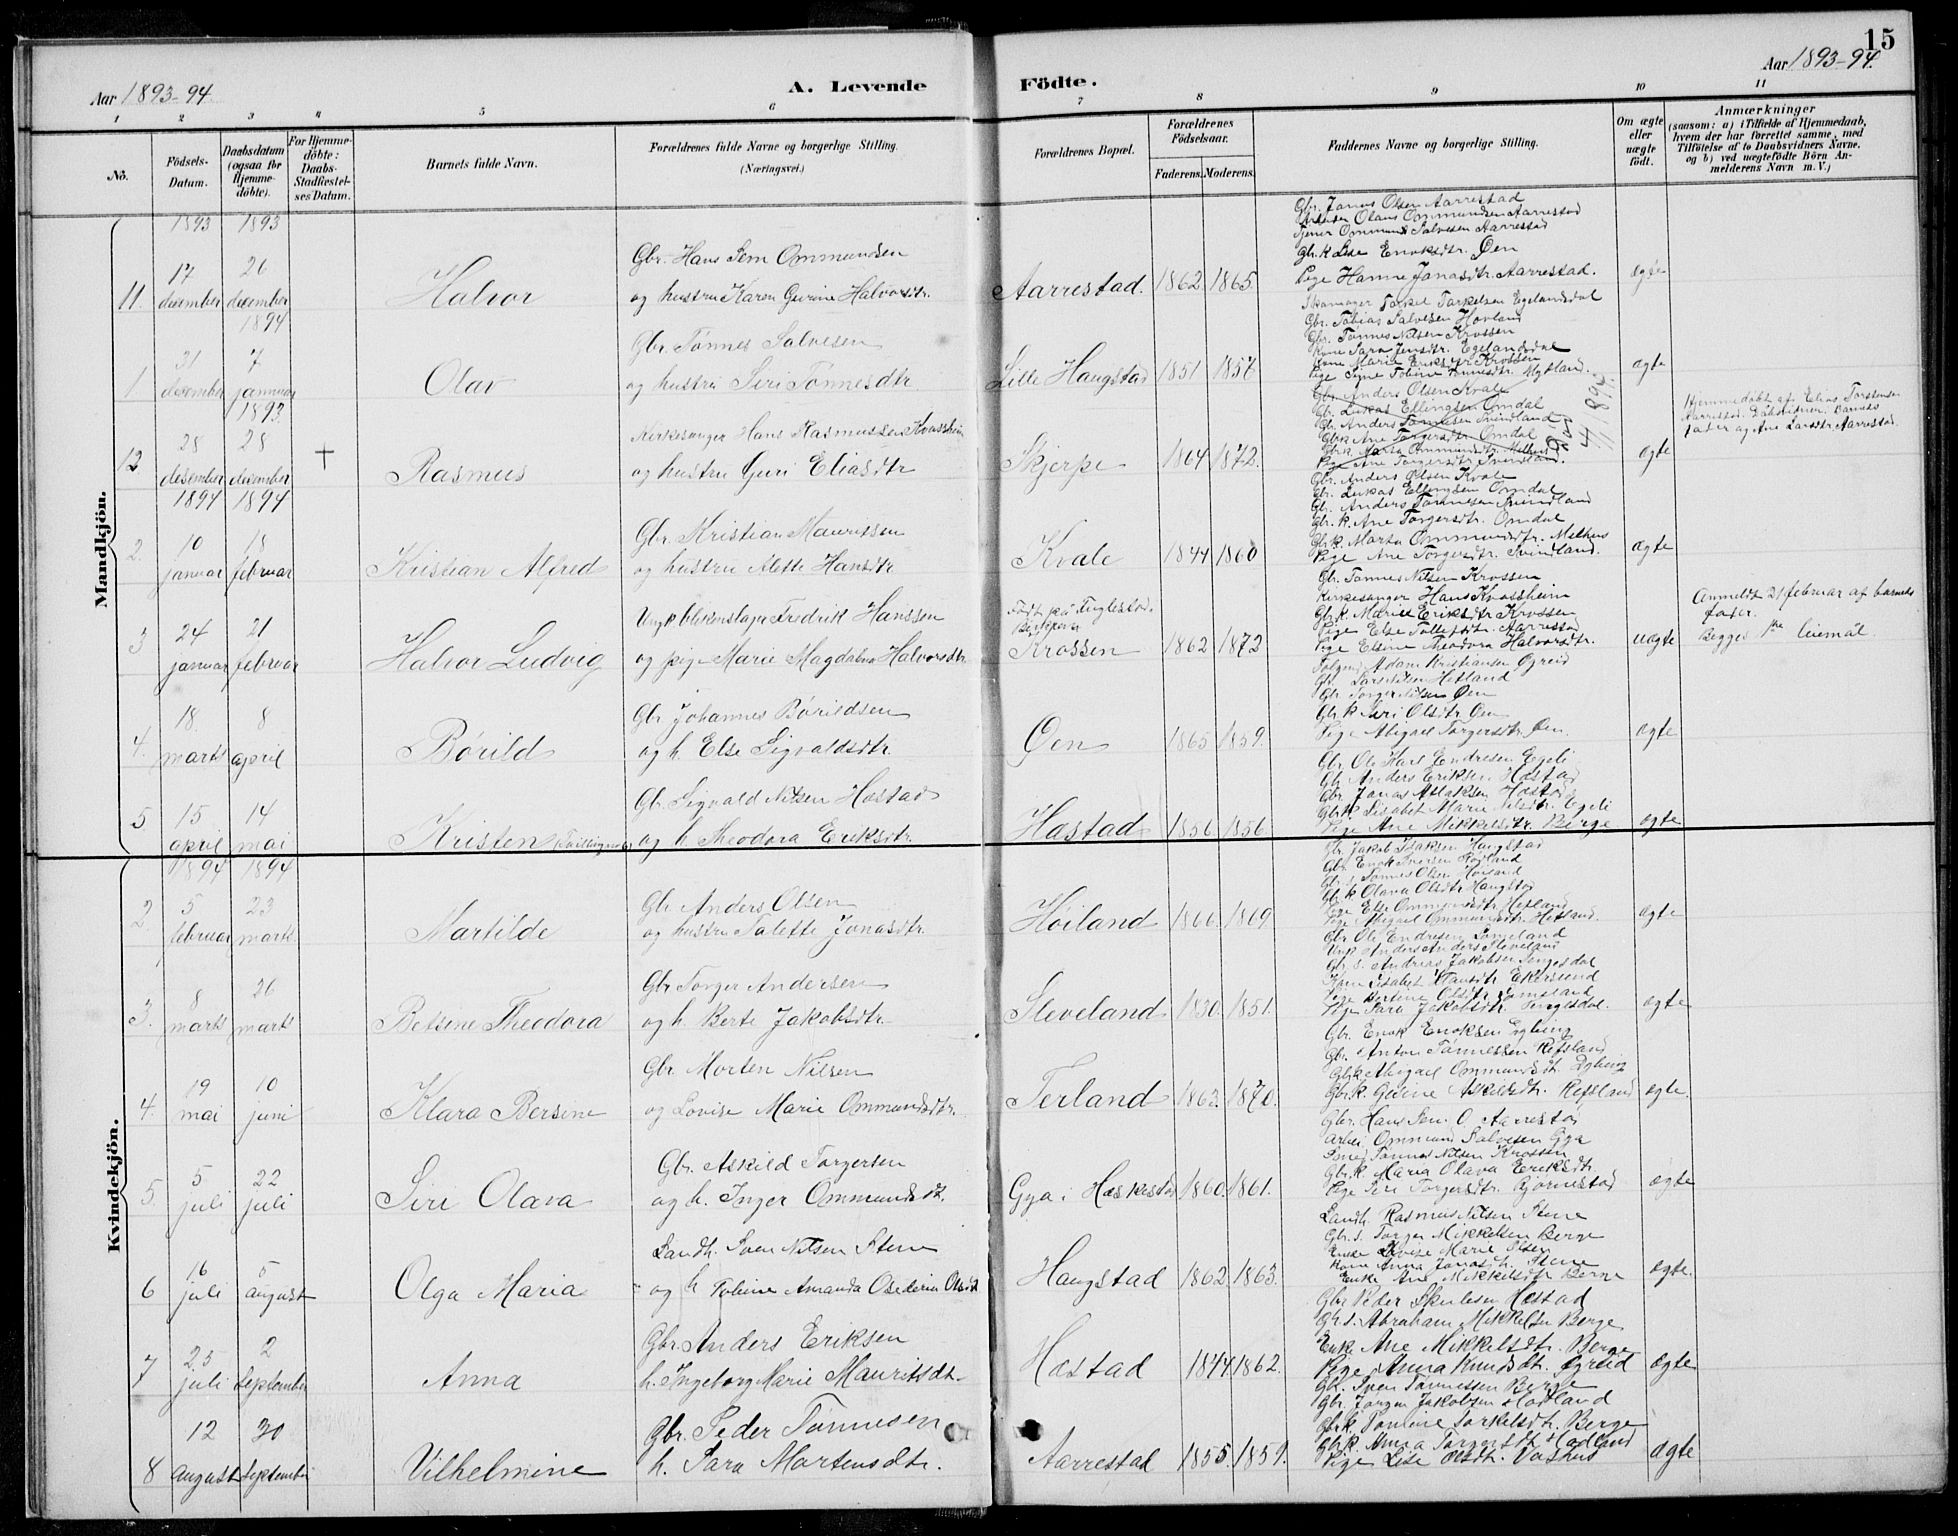 15
Aar 1893-94.
A. Levende
Födte.
Aar 1893-94.
1 2 3 4 5 6 7 8 9 10 11
No.
Födsels-Datum.
Daabsdatum (ogsaa for Hjemmedöbte).
For Hjemmedöbte: Daabs-Stadfæstelses Datum.
Barnets fulde Navn.
Forældrenes fulde Navne og borgerlige Stilling. (Næringsvei.)
Forældrenes Bopæl.
Forældrenes Födselsaar.
Faderens. Moderens.
Faddernes Navne og borgerlige Stilling.
Om ægte eller uægte födt.
Anmærkninger
(saasom: a) i Tilfælde af Hjemmedaab, hvem der har forrettet samme, med Tilföielse af to Daabsvidners Navne, og b) ved uægtefödte Börn Anmelderens Navn m. V.)
Mandkjön.
1893 1893
11. 17 desember 26 desember
Halvor
Gbr. Hans Sem Ommundsen
og hustru Karen Gurine Halvorsdtr.
Aarrestad. 1862. 1865.
Gbr. Jonas Olsen Aarrestad
Olaus Ommundsen Aarrestad
Tjener Ommund Salvesen Aarrestad
Gbr.k Lise Enoksdtr. Øen
Pige Hanne Jonasdtr. Aarrestad.
ægte
1894
1 31 desember 7 januar
Olav
Gbr. Tönnes Salvesen
og hustru Siri Tönnesdtr
Lille Haugstad 1851 1857
Skomager Torkel Torkelsen Egelandsdal
Gbr. Tobias Salvesen Hovland
Gbr. Tönnes Nilsen Krossen
Kone Sara Jensdtr. Egelandsdal
Kone Marie Eriksdtr Krossen
ægte
1893
12 28 desember 28 desember †
Rasmus
Kirkesanger Hans Rasmussen Kvassheim
og hustru Guri Eliasdtr
Skjerpe 1864 1872.
Gbr. Anders Olsen Kvale
Gbr. Lukas Ellingsen Omdal
Gbr. Anders Tönnesen Svindland
Gbrk Ane Torgersdtr. Omdal
Gbrk. Marta Ommundsdtr. Melhus
Pige Ane Torgersdtr. Svindland.
ægte
Hjemmedöbt af Elias Torstensen
Aarrestad. Daabsvidner. barnets
fader og Ane Larsdtr Aarrestad.
1894 1894
2. 10 januar 18 februar
Kristian Alfred
Gbr. Kristian Mauritsen
og hustru Alette Hansdtr
Kvale 1844 1860
Gbr. Anders Olsen Kvale
Gbr. Lukas Ellingsen Omdal
Gl. Anders Tönnesen Svindland
Gbr. k. Ane Torgersdtr. Omdal
Gbrk. Marta Ommundsdtr. Melhus
Pige Ane Torgersdtr. Svindland.
ægte
3 24 januar 21 februar
Halvor Ludvig
Ungk blikenslager Fredrik Hanssen
og pige Marie Magdalena Halvorsdtr
Födt på Fuglestad.
Krossen 1862 1872
Gbr. Tönnes Nilsen Krossen
Kirkesanger Hans Kvassheim
Gbr.k. Marie Eriksdtr Krossen
Pige Else Tollefsdtr. Aarrestad
Pige Elsine Theodora Halvorsdtr.
uægte
Anmeldt 21/februar af barnets
fader.
Begges 1ste leiemål.
4. 18. marts 8 april
Börild
Gbr Johannes Börildsen
og h. Else Sigvaldsdtr
Øen 1865 1859.
Adam Kristiansen Ögreid
Gbr. Lars Nilsen Hetland
Gbr. Torger Nilsen Øen
Gbr k Siri Olsdtr Øen
Pige Abigael Torgersdtr. Øen.
ægte
5 15 april 14 mai
Kristen (Tvillingsøn)
Gbr. Sigvald Nilsen Hæstad
og h. Theodora Eriksdtr.
Hæstad 1856 1856
Gbr Ole Karl Endresen Egeli
Gbr Anders Eriksen Hæstad
Gbr Jonas Hæstad
Gbrk. Lisabet Marie Nilsdtr. Egeli
Pige Ane Mikkelsdtr. Berge
ægte
Kvindekjön.
1894 1894
2 5 februar 23 marts
Martilde
Gbr. Anders Olsen
og hustru Talette Jonasdtr.
Höiland 1866. 1869
Gbr. Jakob Isaksen Haugstad
Gbr. Enok Iversen
Gbr. s. Tönnes Olsen Höiland
Gbr k Olava Olsdtr Haugstad
Pige Else Ommundsdtr Hetland
Pige Abigael Ommundsdtr Hetland.
ægte
3. 8 marts 26 marts
Betsine Theodora
Gbr Torger Andersen
og h. Berte Jakobsdtr.
Sleveland 1830. 1851.
Gbr Ole Endresen
Ungk Anders Anders Sleveland
Gbr. s. Andreas Jakobsen Tengesdal
Kone Lisabet Ekersund
Pige Sara Jakobsdtr. Tengesdal.
ægte
4. 19 mai 10 juni
Klara Bersine
Gbr Morten Nilsen
og Lovise Marie Ommundsdtr.
Terland 1863. 1870.
Gbr. Enok Enoksen Eg
Gbr. Anton Tönnessen Refsland
Gbrk Abigael Ommundsdt.
Gbr.k. Gurine Askildsdtr. Refsland
ægte.
5. 5 juli 22 juli
Siri Olava
Gbr. Askild Torgersen
og h. Inger Ommundsdt.
Gya i Hæskestad 1860. 1861.
Gbr. Hans Sem. O Aarrestad
Arbei. Ommund Salvesen Gya
Tönnes Nilsen Krossen
Gbr.k. Maria Olava Eriksdtr
Pige Siri Torgersdtr. Bjørnestad
ægte
6 16 juli 5 august
Olga Maria
Landh. Sven Nilsen Stene
og h Tobine Amanda Olsdt
Haugstad 1862. 1863.
Landh. Rasmus Nilsen Stene
Gbr. s. Torger Mikkelsen Berge
Enke Lovise Marie Olsen
Kone Anna Jonasdtr. Stene
Enke Ane Mikkelsdtr Berge
ægte.
7 25 juli 2 September
Anna
Gbr. Anders Eriksen
h. Ingeborg Marie Mauritsdt.
Hæstad 1844. 1862.
Gbr. Peder Skulesen Hæstad
Gbr. s. Abraham Mikkelsen Berge
Enk. Ane Mikkelsdtr. Berge
Pige Anna Knudsdtr. Ögreid
ægte
8 12 august 30 September
Vilhelmine
Gbr. Peder Tönnesen
h. Sara Mortensdtr.
Aarrestad 1855. 1859.
Gbr. Sven Tönnessen Berge
Gbr. Jörgen Jakobsen Hodland
Gbrk Tomine Torkelsdtr. Berge
Gbrk. Anna Torgersdtr Hodland
Pige Lise Olsdtr. Vashus
ægte